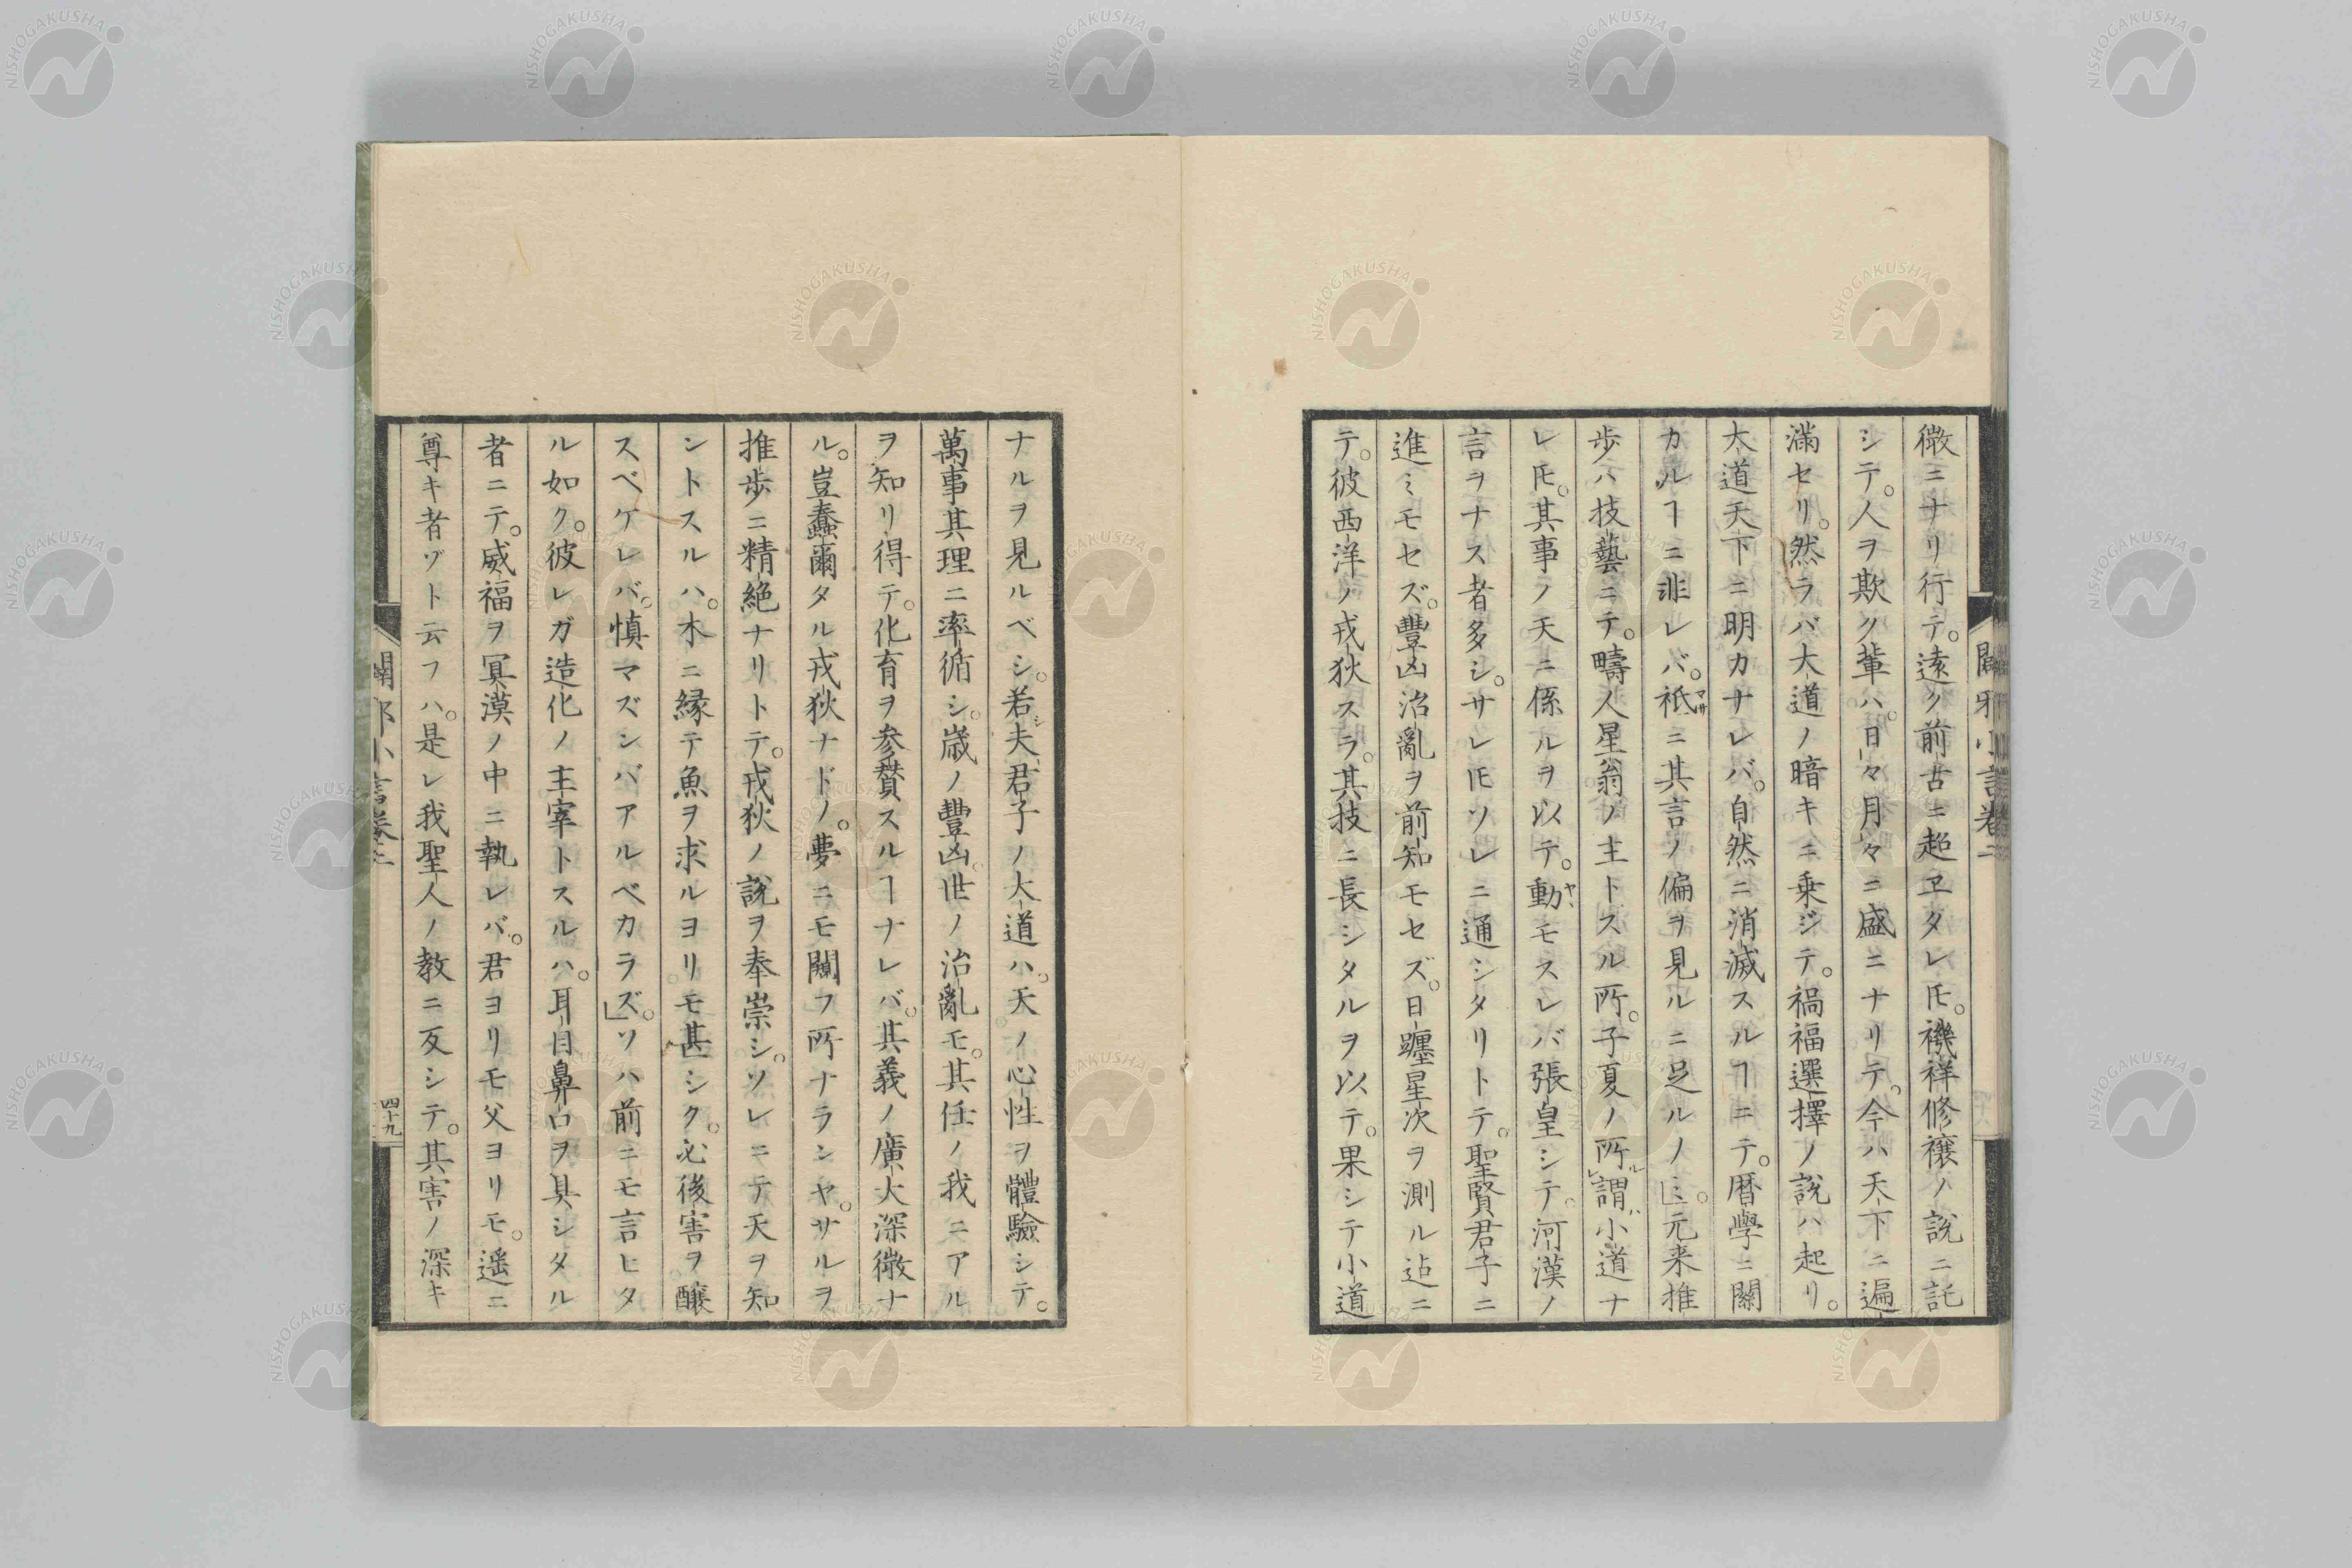 微ニナリ行テ。遠ク前古ニ超ヱタレ𪜈。禨祥修禳ノ說ニ託
シテ。人ヲ欺ク輩ハ。日々月々ニ盛ニナリテ。今ハ天下ニ遍
滿セリ。然ラバ大道ノ暗キニ乗ジテ。禍福選擇ノ說ハ起リ。
大道天下ニ明カナレバ。自然ニ消滅スルヿニテ。暦學ニ關
カルヿニ非レバ。祇ニ其言ノ偏ヲ見ルニ足ルノミ」。元来推
歩ハ技藝ニテ。疇人星翁ノ主トスル所。子夏ノ所謂小道ナ
レ𪜈。其事ノ天ニ係ルヲ以テ。動モスレバ張皇シテ。河漢ノ
言ヲナス者多シ。サレ𪜈ソレニ通シタリトテ。聖賢君子ニ
進ミモセズ。豐凶治亂ヲ前知モセズ。日躔星次ヲ測ル迠ニ
テ。彼西洋ノ戎狄スラ。其技ニ長シタルヲ以テ。果シテ小道
ナルヲ見ルベシ。若夫君子ノ大道ハ。天ノ心性ヲ體驗シテ。
萬事其理ニ率循シ。歲ノ豐凶。世ノ治亂モ。其任ノ我ニアル
ヲ知リ得テ。化育ヲ參贊スルヿナレバ。其義ノ廣大深微ナ
ル。豈蠢爾タル戎狄ナドノ。夢ニモ闚フ所ナランヤ。サルヲ
推歩ニ精絶ナリトテ。戎狄ノ說ヲ奉崇シ。ソレニテ天ヲ知
ントスルハ。木ニ縁テ魚ヲ求ルヨリモ甚シク。必後害ヲ釀
スベケレバ。慎マズンバアルベカラズ」。ソハ前ニモ言ヒタ
ル如ク。彼レガ造化ノ主宰トスルハ。耳目鼻口ヲ具シタル
者ニテ。威福ヲ冥漠ノ中ニ執レバ。君ヨリモ父ヨリモ。遥ニ
尊キ者ゾト云フハ。是レ我聖人ノ教ニ反シテ。其害ノ深キ
闢邪小言卷二
四十九
NISHOGAKUSHA